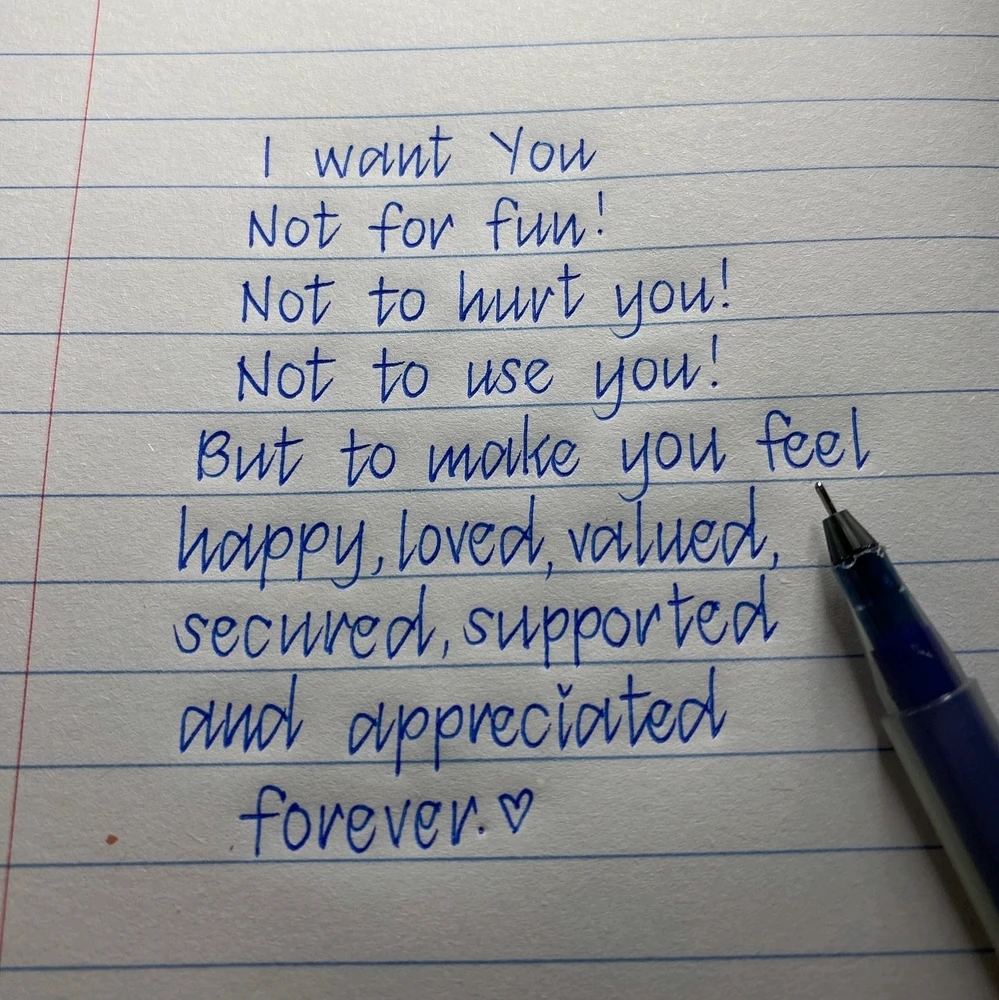 I want You
Not for fun!
Not to hurt you!
Not to use you!
But to make you feel
happy, loved, valued,
secured, supported
and appreciated
forever. ♡